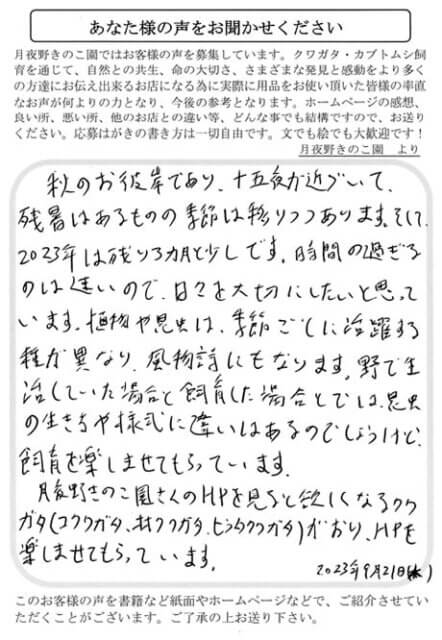 あなた様の声をお聞かせください
月夜野きのこ園ではお客様の声を募集しています。クワガタ・カブトムシ飼
育を通じて、自然との共生、命の大切さ、さまざまな発見と感動をより多く
の方達にお伝え出来るお店になる為に実際に用品をお使い頂いた皆様の率直
なお声が何よりの力となり、今後の参考となります。ホームページの感想、
良い所、悪い所、他のお店との違い等、どんな事でも結構ですので、お送り
ください。応募はがきの書き方は一切自由です。文でも絵でも大歓迎です！
月夜野きのこ園　より
秋のお彼岸であり、十五夜が近づいて、
残暑はあるものの季節は移りつつあります。そして、
2023年は残り3カ月と少しです。時間の過ぎる
のは速いので、日々を大切にしたいと思って
います。植物や昆虫は、季節ごとに活躍する
種が異なり、風物詩にもなります。野で生
活していた場合と飼育した場合とでは、昆虫
の生き方や様式に違いはあるのでしょうけど、
飼育を楽しませてもらっています。
月夜野きのこ園さんのHPを見ると欲しくなるクワ
ガタ(コクワガタ、オオクワガタ、ヒラタクワガタ)がおり、HPを
楽しませてもらっています。
2023年9月21日(木)
このお客様の声を書籍など紙面やホームページなどで、ご紹介させてい
ただくことがございます。ご了承の上お送り下さい。